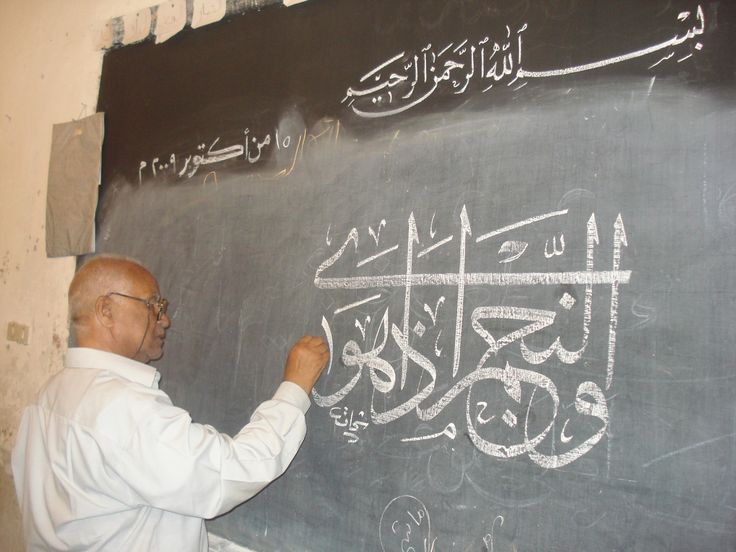 بِسْمِ اللهِ الرَّحْمَنِ الرَّحِيمِ
١٥ من أكتوبر ٢٠٠٩ م
والنَّجم إذا هوى